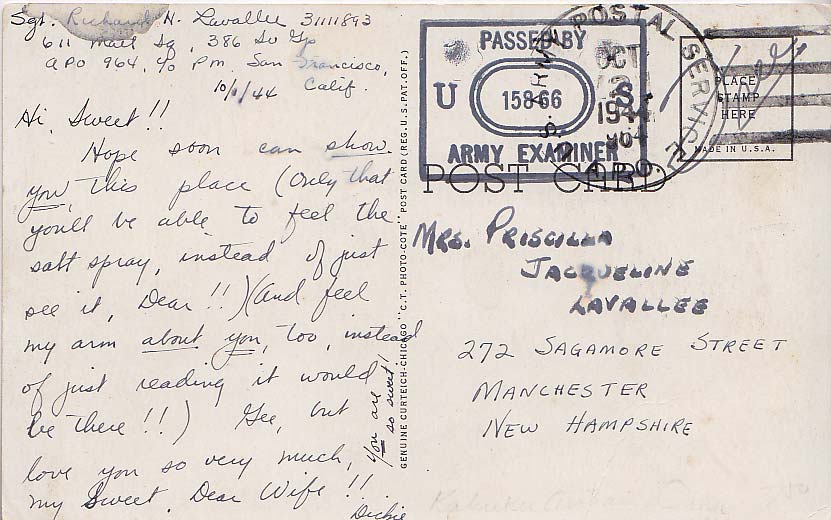 Sgt. Richard H. Lavallee 31111893
611 Mail Sq, 386 Sv Gp
APO 964, c/o PM, San Francisco,
Calif.
10/1/44
Hi, Sweet!!
Hope soon can show
you, this place (only that
you'll be able to feel the
salt spray, instead of just
see it, Dear!!) (and feel
my arm about you, too, instead
of just reading it would
be there!!) Gee, but
love you so very much,
my Sweet, Dear Wife!!
Dickie
You are so sweet!
GENUINE CURTEICH-CHICAGO "C.T. PHOTO-COTE" POST CARD (REG. U.S. PAT. OFF.)
PASSED BY
U S
15866
ARMY EXAMINER
U.S. ARMY POSTAL SERVICE
OCT
2
1944
964
A.P.O.
PLACE
STAMP
HERE
MADE IN U.S.A.
POST CARD
MRS. PRISCILLA
JACQUELINE
LAVALLEE
272 SAGAMORE STREET
MANCHESTER
NEW HAMPSHIRE